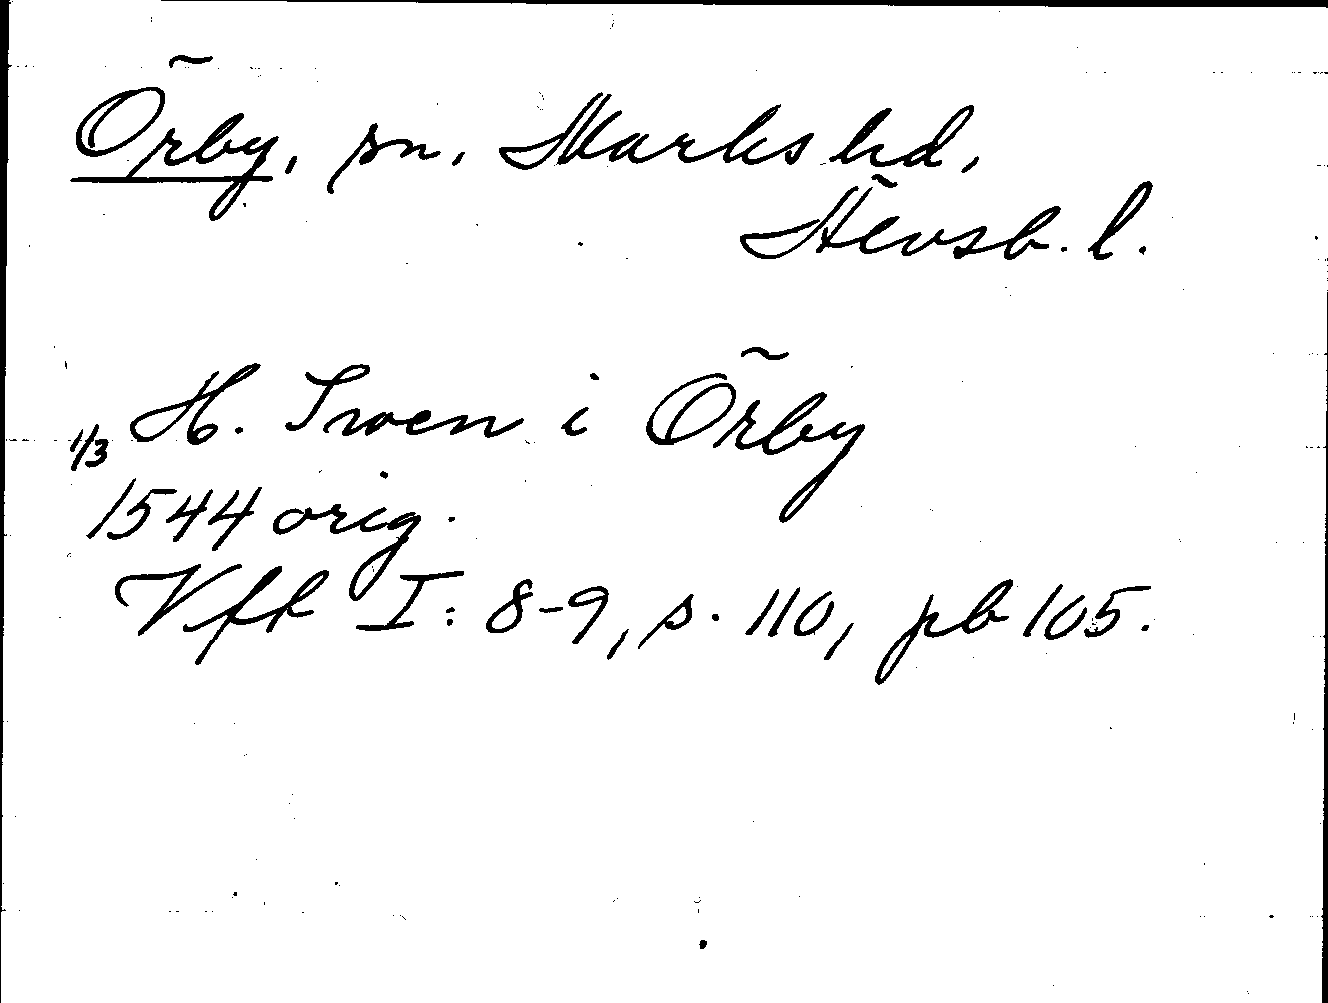 Örby, sn, Marks hd,
Älvsb. l.
1/3 H. Swen i Örby
1544 orig.
Vft I: 8-9, s. 110, pb 105.